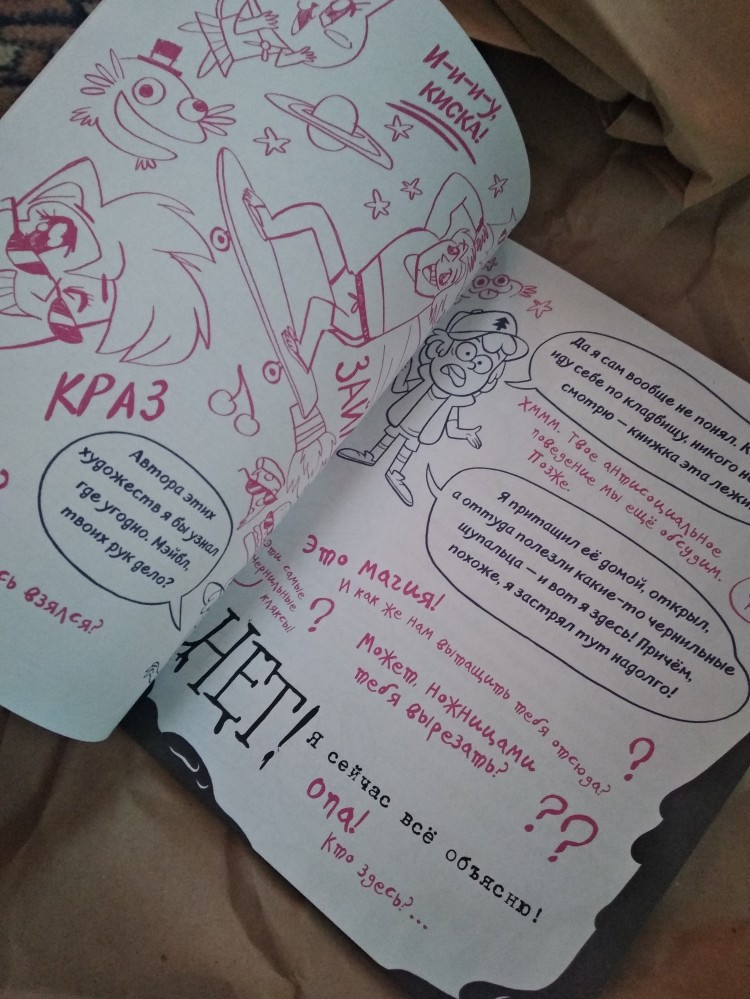 И-и-и-у,
КИСКА!
КРАЗ
Автора этих
художеств я бы узнал
где угодно. Мэйбл,
твоих рук дело?
взялся?
Да я сам вообще не понял.
иду себе по кладбищу, никого не
смотрю — книжка эта
Хммм. Твое антисоциальное
поведение мы ещё обсудим.
Позже.
Я притащил её домой, открыл,
а оттуда полезли какие-то чернильные
щупальца — и вот я здесь! Причём,
похоже, я застрял тут надолго!
Эти самые
чернильные
кляксы!
Это магия!
И как же нам вытащить тебя отсюда?
?
Может, ножницами
тебя вырезать?
?
??
НЕТ!
Я сейчас всё объясню!
Опа!
Кто здесь?...